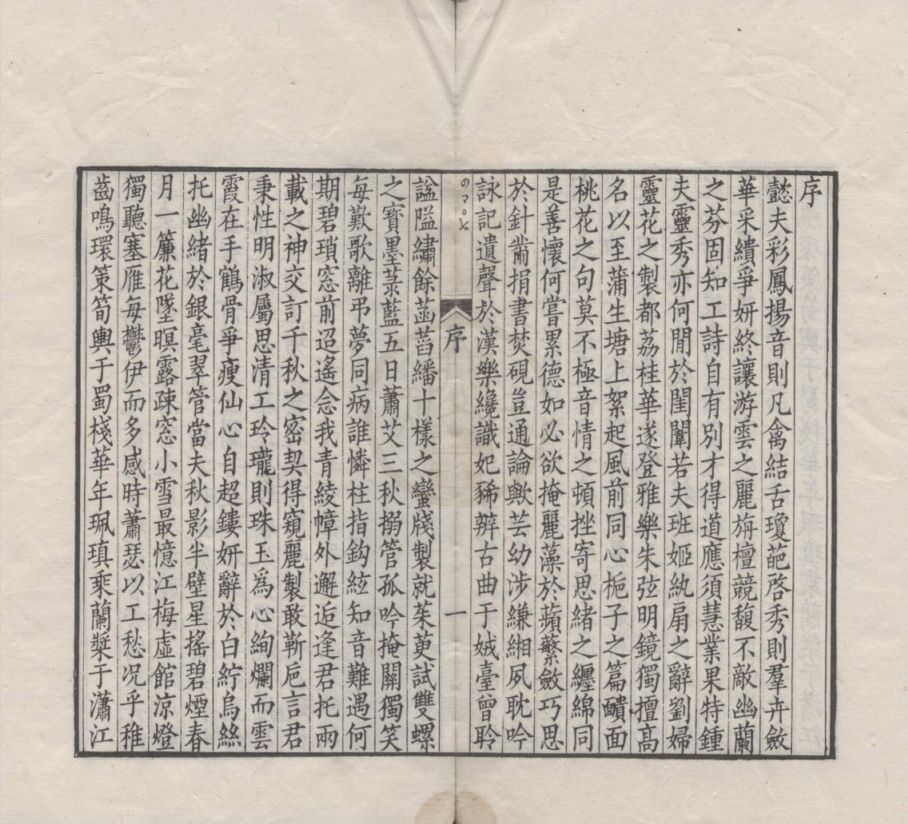 序
懿夫彩鳳揚音則凡禽結舌瓊葩啓秀則羣卉斂
華采繢爭妍終讓游雲之麗旃檀競馥不敵幽蘭
之芬固知工詩自有別才得道應須慧業果特鍾
夫靈秀亦何閒於閨闈若夫班姬紈扇之辭劉婦
靈花之製都荔桂華遂登雅樂朱弦明鏡獨擅高
名以至蒲生塘上絮起風前同心梔子之篇靧面
桃花之句莫不極音情之頓挫寄思緒之纏綿同
是善懷何嘗累德如必欲掩麗藻於蘋蘩斂巧思
於針黹捐書焚硯豈通論歟芸幼涉縑緗夙耽吟
詠記遺聲於漢樂纔識妃豨辨古曲于娀臺曾聆
序
一
謚隘繡餘菡萏繙十樣之蠻牋製就茱萸試雙螺
之寶墨菉藍五日蕭艾三秋搦管孤吟掩關獨笑
每歎歌離弔夢同病誰憐柱指鈎絃知音難遇何
期碧瑣窓前迢遙念我青綾幛外邂逅逢君托兩
載之神交訂千秋之密契得窺麗製敢靳巵言君
秉性明淑屬思清工玲瓏則珠玉爲心絢爛而雲
霞在手鶴骨爭瘦仙心自超鏤妍辭於白紵烏絲
托幽緒於銀毫翠管當夫秋影半壁星搖碧煙春
月一簾花墜暝露疎窓小雪最憶江梅虛館涼燈
獨聽塞雁每鬱伊而多感時蕭瑟以工愁况乎稚
齒鳴環策筍輿于蜀棧華年珮瑱乘蘭槳于瀟江